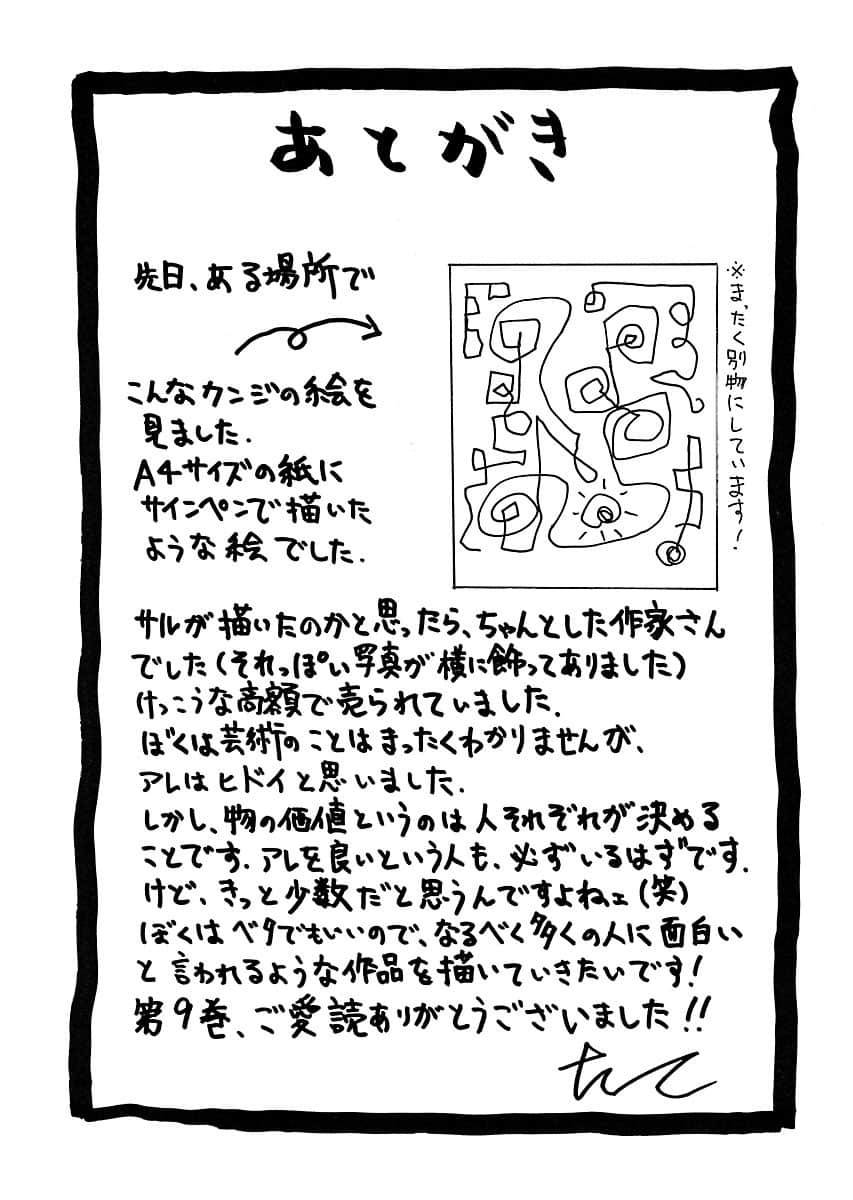 あとがき
先日、ある場所で
こんなカンジの絵を
見ました.
A4サイズの紙に
サインペンで描いた
ような絵でした.
※まったく別物にしています!
サルが描いたのかと思ったら、ちゃんとした作家さん
でした(それっぽい写真が横に飾ってありました)
けっこうな高額で売られていました.
ぼくは芸術のことはまったくわかりませんが、
アレはヒドイと思いました.
しかし、物の価値というのは人それぞれが決める
ことです.アレを良いという人も、必ずいるはずです.
けど、きっと少数だと思うんですよねェ(笑)
ぼくはベタでもいいので、なるべく多くの人に面白い
と言われるような作品を描いていきたいです!
第9巻、ご愛読ありがとうございました!!